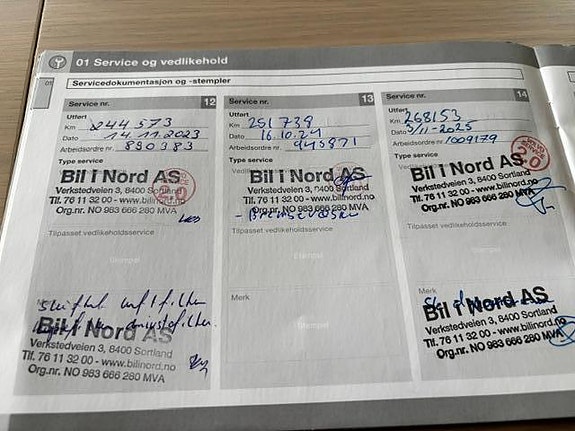 01 Service og vedlikehold
01
Servicedokumentasjon og -stempler
Service nr. 12
Utført
Km 244573
Dato 14.11.2023
Arbeidsordre nr. 890383
Type service
Bil i Nord AS
Verkstedveien 3, 8400 Sortland
Tlf. 76 11 32 00 - www.bilinord.no
Org.nr. NO 983 666 280 MVA
Tilpasset vedlikeholdsservice
Stempel
Bil i Nord AS
Verkstedveien 3, 8400 Sortland
Tlf. 76 11 32 00 - www.bilinord.no
Org.nr. NO 983 666 280 MVA
Service nr. 13
Utført
Km 251739
Dato 16.10.24
Arbeidsordre nr. 945871
Type service
Bil i Nord AS
Verkstedveien 3, 8400 Sortland
Tlf. 76 11 32 00 - www.bilinord.no
Org.nr. NO 983 666 280 MVA
- Bremsevæske
Tilpasset vedlikeholdsservice
Stempel
Merk
Stempel
Service nr. 14
Utført
Km 268153
Dato 3/11-2025
Arbeidsordre nr. 1009179
Type service
Bil i Nord AS
Verkstedveien 3, 8400 Sortland
Tlf. 76 11 32 00 - www.bilinord.no
Org.nr. NO 983 666 280 MVA
Tilpasset vedlikeholdsservice
Merk
Bil i Nord AS
Verkstedveien 3, 8400 Sortland
Tlf. 76 11 32 00 - www.bilinord.no
Org.nr. NO 983 666 280 MVA